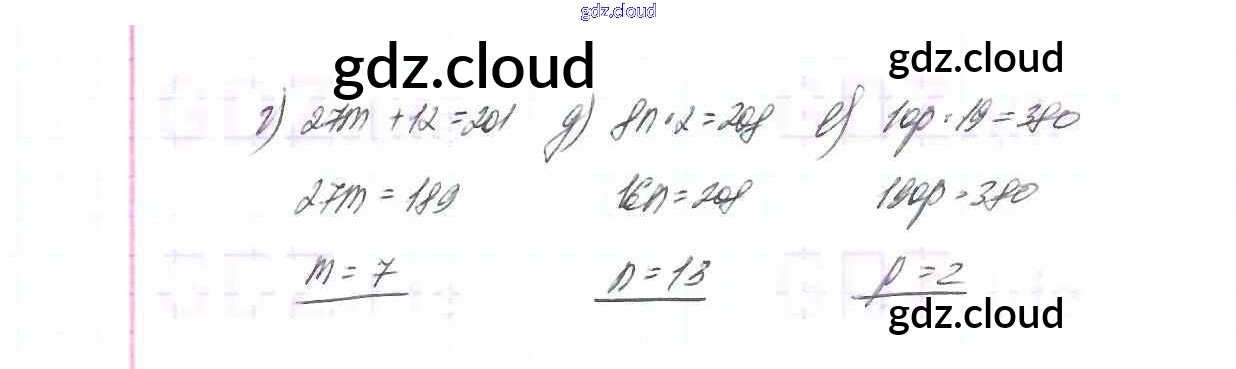 gdz.cloud
gdz.cloud gdz.cloud
г) 27m + 12 = 201 д) 8n · 2 = 208 е) 10p · 19 = 380
27m = 189 16n = 208 190p = 380
m = 7 n = 13 p = 2
gdz.cloud